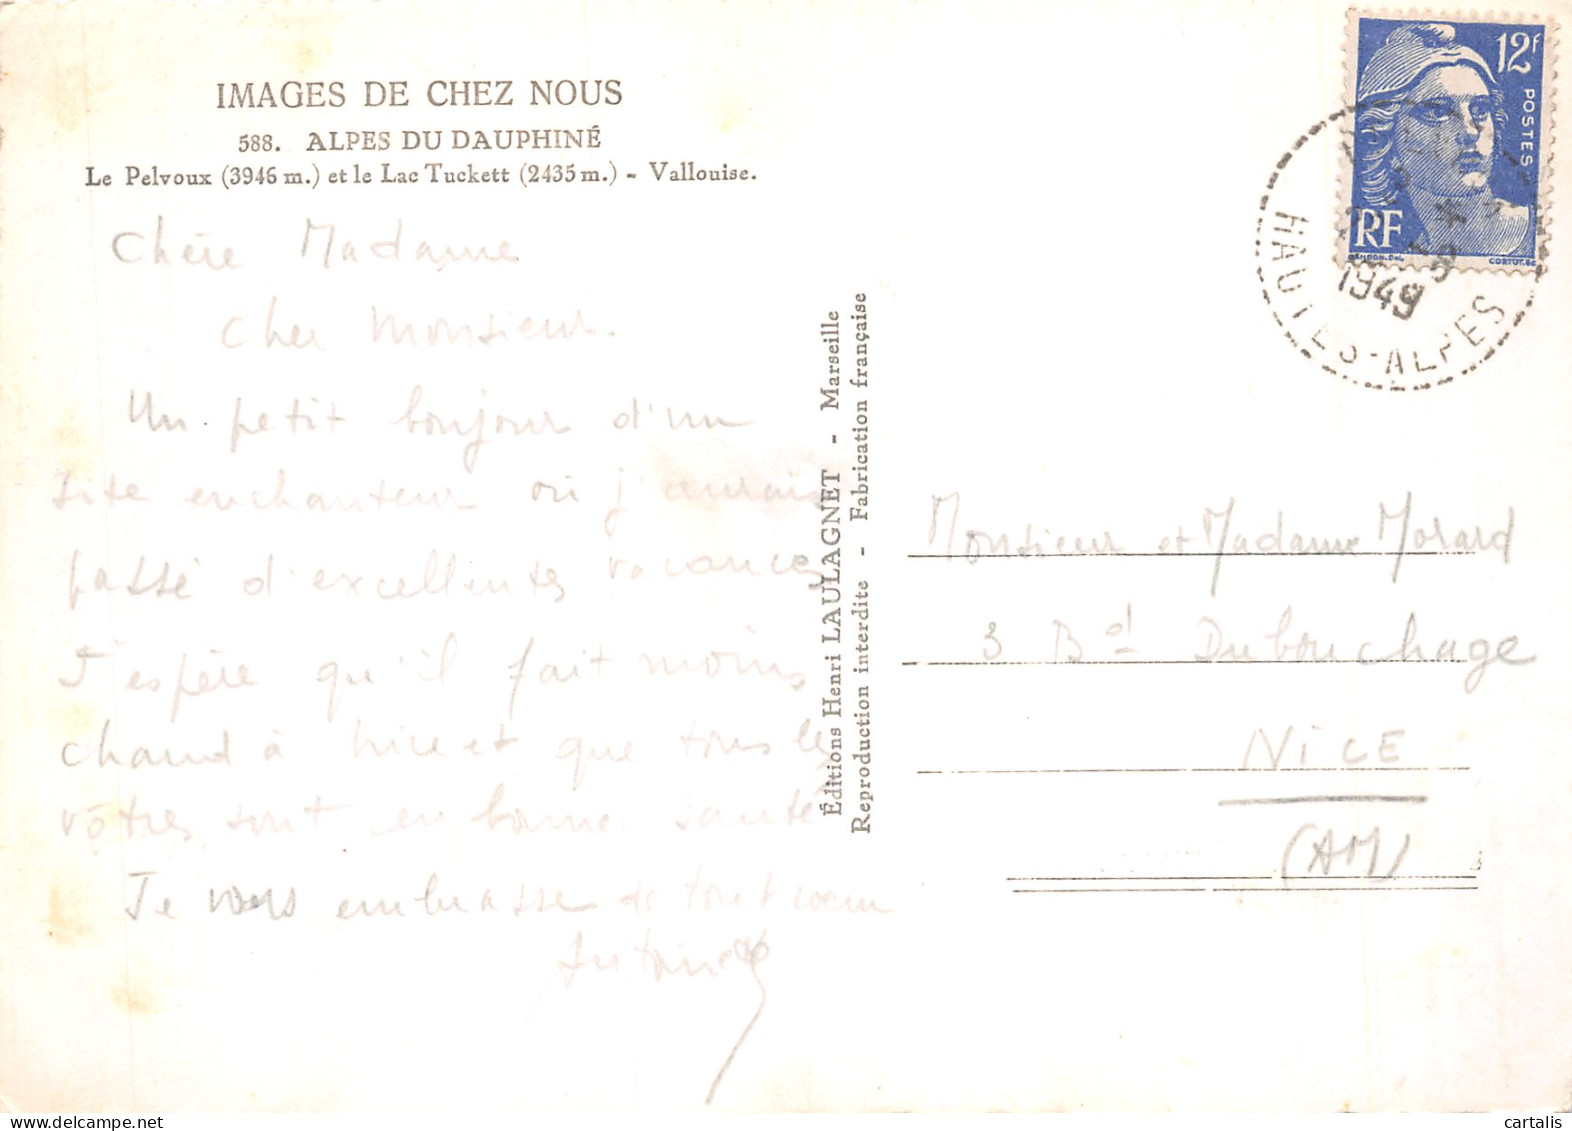 IMAGES DE CHEZ NOUS
588. ALPES DU DAUPHINÉ
Le Pelvoux (3946 m.) et le Lac Tuckett (2435 m.) - Vallouise.
Chère Madame
Cher Monsieur.
Un petit bonjour d'un
site enchanteur où j'aurais
passé d'excellentes vacances
J'espère qu'il fait moins
chaud à Nice et que tous les
vôtres sont en bonne santé
Je vous embrasse de tout coeur
Éditions Henri LAULAGNET - Marseille
Reproduction interdite - Fabrication française
12F
POSTES
RF
GANDON.Del.
CORTOT.Sc
1949
HAUTES-ALPES
Monsieur et Madame Morard
3 Bd Dubouchage
NICE
(AM)
© cartalis www.delcampe.net